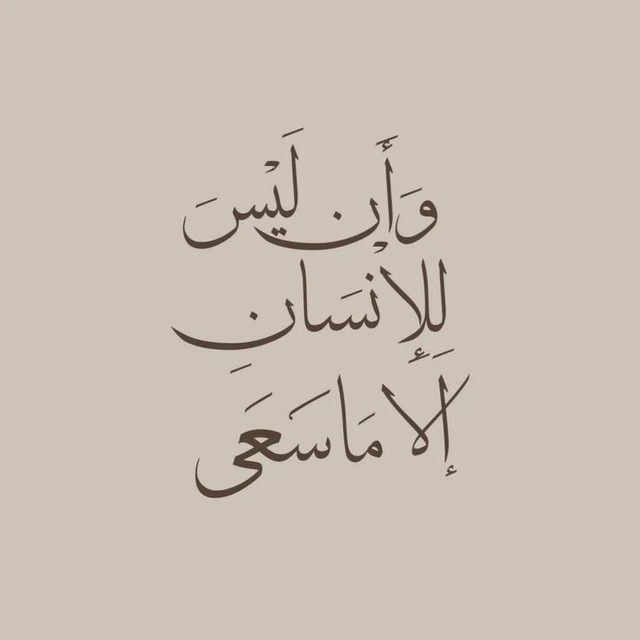 وَأَن لَيْسَ
لِلإِنْسَانِ
إِلَّا مَا سَعَى